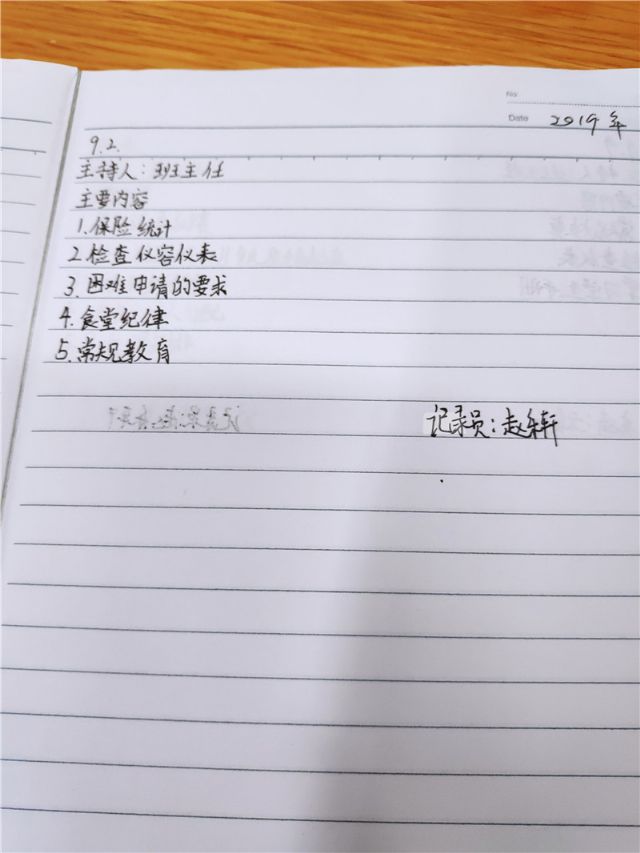 No
Date 2019年
9.2.
主持人:班主任
主要内容
1.保险统计
2.检查仪容仪表
3.困难申请的要求
4.食堂纪律
5.常规教育
记录员:赵轩